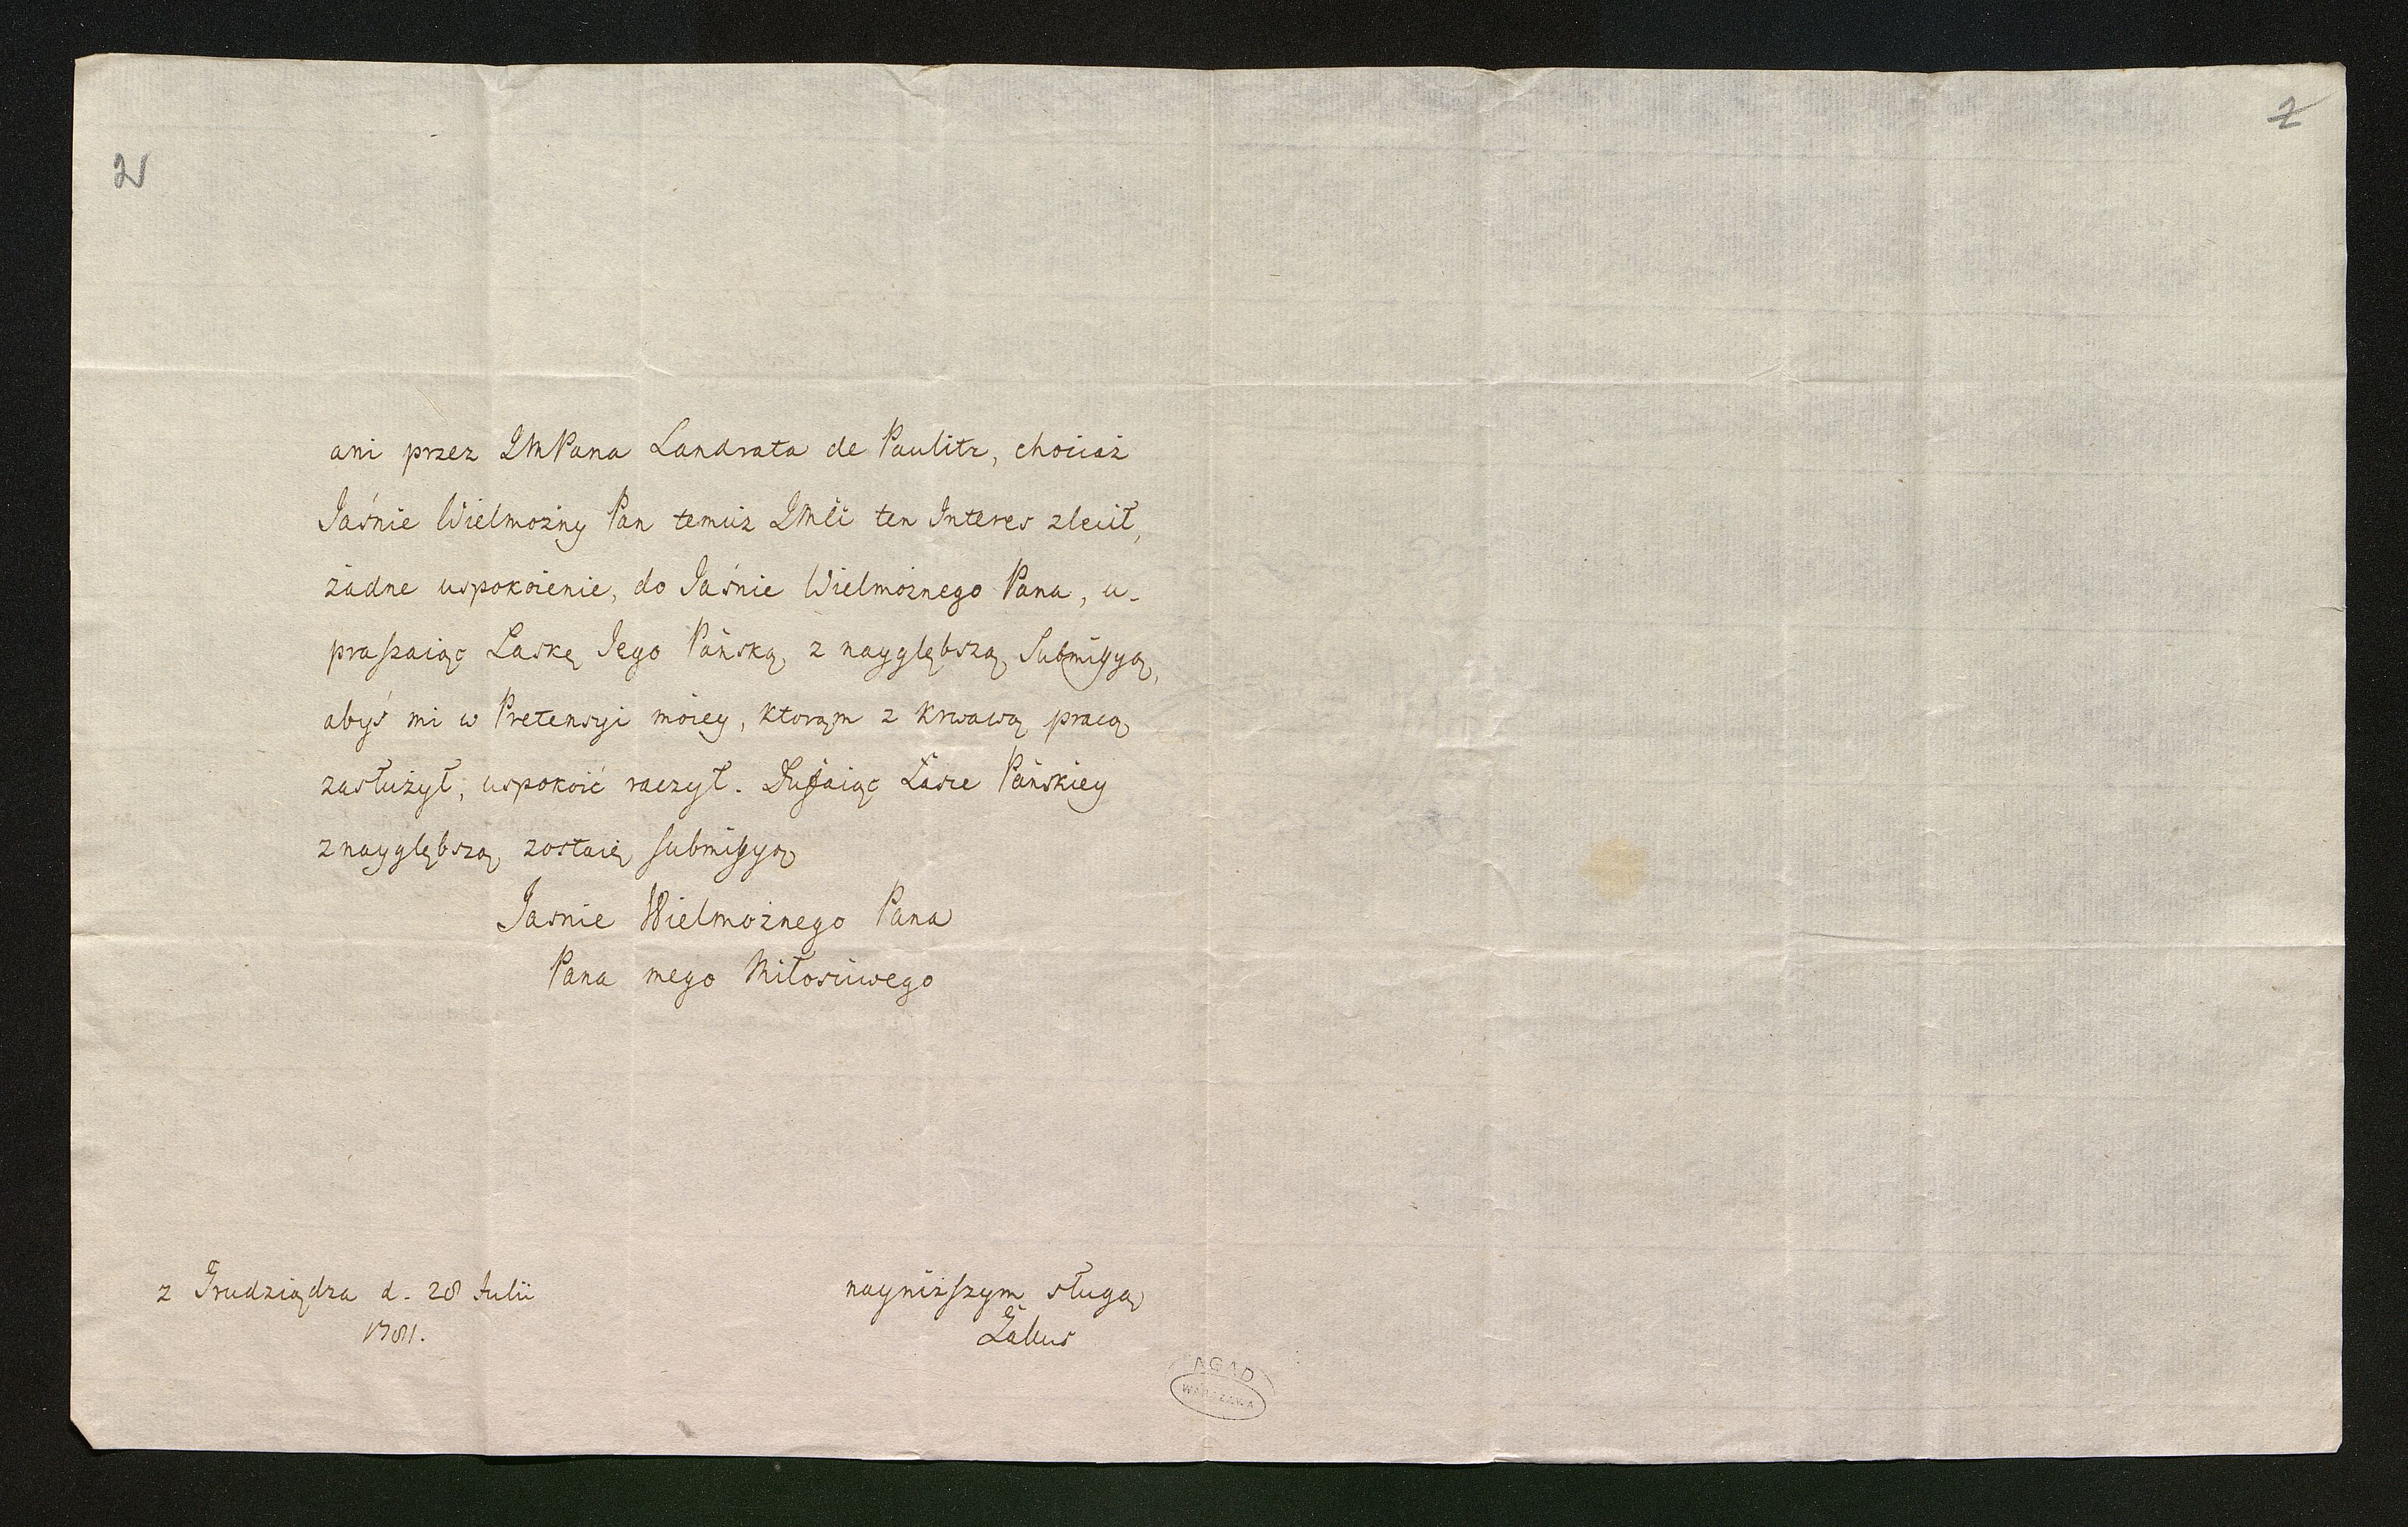 2
2
ani przez IMPana Landrata de Paulitz, chociaż
Jaśnie Wielmożny Pan temuż IMći ten Interes zlecił,
żadne uspokoienie, do Jaśnie Wielmożnego Pana, u-
praſzaiąc Łaskę Jego Pańską z nayglębszą Submiſsyą,
abyś mi w Pretensyi moiey, ktorąm z krwawą pracą
zasłużył, uspokoić raczył. Dufaiąc Łasce Pańskiey
z nayglębszą zostaię ſubmiſsyą
Jasnie Wielmożnego Pana
Pana mego Miłosciwego
z Grudziądza d. 28 Julii
1781.
nayniżſzym sługą
AGAD
WARSZAWA